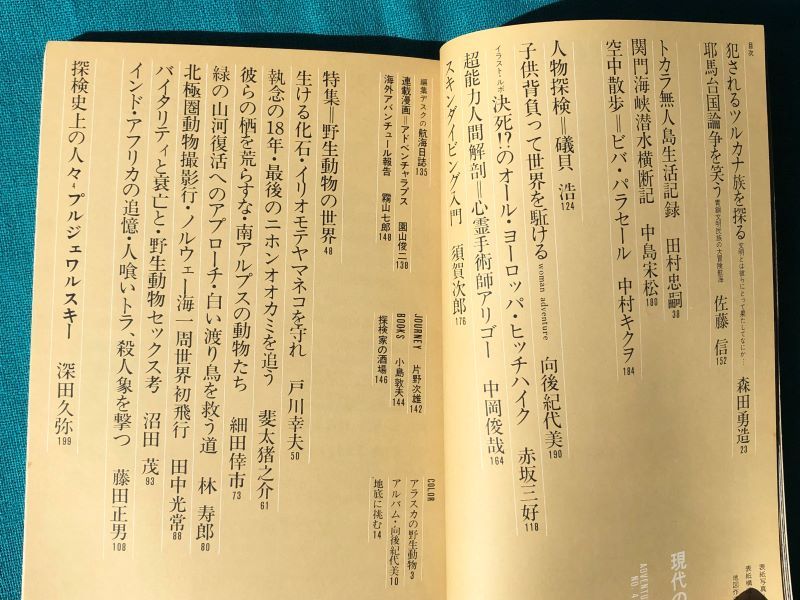 目次
犯されるツルカナ族を探る 文明とは彼りにとって果たしてなにか… 森田勇造 23
耶馬台国論争を笑う 青銅文明民族の大冒険航海 佐藤 信 152
トカラ無人島生活記録 田村忠嗣 38
関門海峡潜水横断記 中島宋松 180
空中散歩=ビバ・パラセール 中村キクヲ 184
人物探検=礒貝 浩 124
子供背負って世界を駈ける woman adventure 向後紀代美 190
イラスト・ルポ 決死!?のオール・ヨーロッパ・ヒッチハイク 赤坂三好 118
超能力人間解剖=心霊手術師アリゴー 中岡俊哉 164
スキンダイビング入門 須賀次郎 176
現代の
ADVENTU
NO 4
表紙写真
表紙構
地図作
編集デスクの航海日誌 135
連載漫画=アドベンチャラブス 園山俊二 138
海外アバンチュール報告 霧山七郎 148
JOURNEY 片野次雄 142
BOOKS 小島敦夫 144
探検家の酒場 146
COLOR
アラスカの野生動物 3
アルバム・向後紀代美 10
地底に挑む 14
特集=野生動物の世界 48
生ける化石・イリオモテヤマネコを守れ 戸川幸夫 50
執念の18年・最後のニホンオオカミを追う 斐太猪之介 61
彼らの栖を荒らすな・南アルプスの動物たち 細田倖市 73
緑の山河復活へのアプローチ・白い渡り鳥を救う道 林 寿郎 80
北極圏動物撮影行・ノルウェー海一周世界初飛行 田中光常 88
バイタリティと衰亡と・野生動物セックス考 沼田 茂 93
インド・アフリカの追憶・人喰いトラ、殺人象を撃つ 藤田正男 108
探検史上の人々4 プルジェワルスキー 深田久弥 199